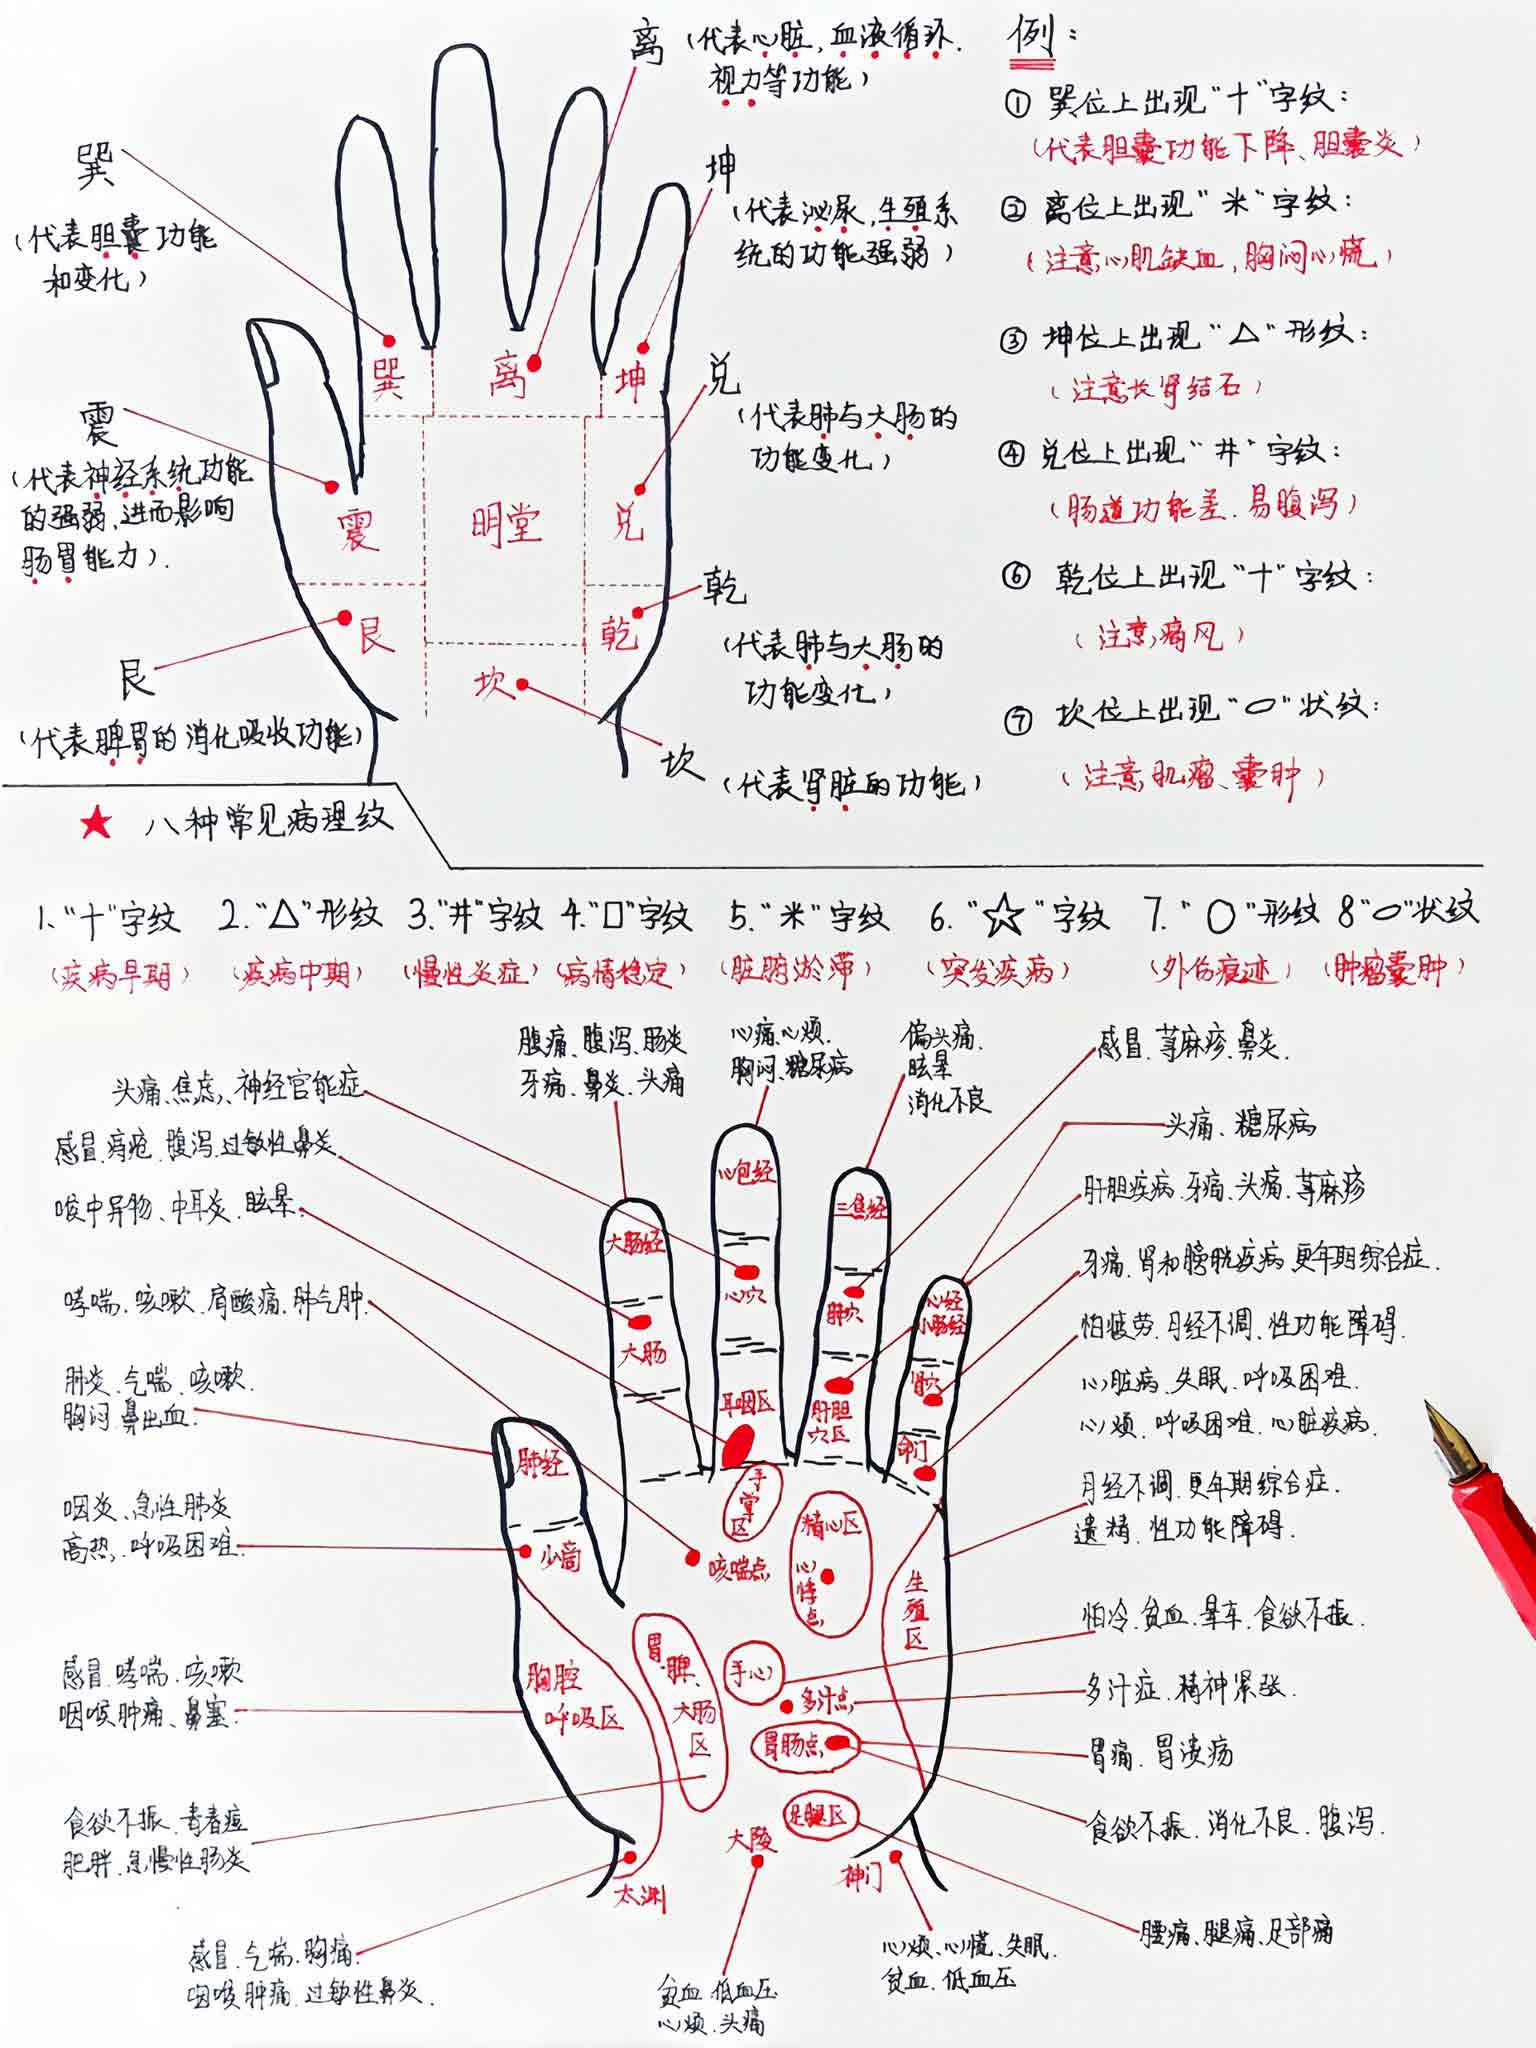 离（代表心脏，血液循环、
视力等功能）
巽
（代表胆囊功能
和变化）
坤
（代表泌尿，生殖系
统的功能强弱）
震
（代表神经系统功能
的强弱、进而影响
肠胃能力）.
兑
（代表肺与大肠的
功能变化）
艮
（代表脾胃的消化吸收功能）
乾
（代表肺与大肠的
功能变化）
坎
（代表肾脏的功能）
巽
离
坤
震
明堂
兑
艮
乾
坎
例：
① 巽位上出现“十”字纹：
（代表胆囊功能下降、胆囊炎）
② 离位上出现“米”字纹：
（注意心肌缺血，胸闷心慌）
③ 坤位上出现“△”形纹：
（注意长肾结石）
④ 兑位上出现“井”字纹：
（肠道功能差、易腹泻）
⑥ 乾位上出现“十”字纹：
（注意痛风）
⑦ 坎位上出现“⬭”状纹：
（注意肌瘤、囊肿）
★ 八种常见病理纹
1.“十”字纹 2.“△”形纹 3.“井”字纹 4.“□”字纹 5.“米”字纹 6.“☆”字纹 7.“○”形纹 8“⬭”状纹
（疾病早期）（疾病中期）（慢性炎症）（病情稳定）（脏腑淤滞）（突发疾病）（外伤痕迹）（肿瘤囊肿）
腹痛、腹泻、肠炎
牙痛、鼻炎、头痛
心痛、心烦、
胸闷、糖尿病
偏头痛、
眩晕
消化不良
感冒、荨麻疹、鼻炎.
头痛、焦虑、神经官能症
感冒、痔疮、腹泻、过敏性鼻炎
喉中异物、中耳炎、眩晕
哮喘、咳嗽、肩酸痛、肺气肿
肺炎、气喘、咳嗽、
胸闷、鼻出血.
咽炎、急性肺炎
高热、呼吸困难
感冒、哮喘、咳嗽
咽喉肿痛、鼻塞
食欲不振、青春痘
肥胖、急慢性肠炎
感冒、气喘、胸痛、
咽喉肿痛、过敏性鼻炎.
头痛、糖尿病
肝胆疾病、牙痛、头痛、荨麻疹
牙痛、肾和膀胱疾病、更年期综合症.
怕疲劳、月经不调、性功能障碍.
心脏病、失眠、呼吸困难.
心烦、呼吸困难、心脏疾病.
月经不调、更年期综合症.
遗精、性功能障碍.
怕冷、贫血、晕车、食欲不振.
多汁症、精神紧张.
胃痛、胃溃疡
食欲不振、消化不良、腹泻.
腰痛、腿痛、足部痛
心烦、心慌、失眠、
贫血、低血压
贫血、低血压
心烦、头痛
心包经
三焦经
大肠经
心经
小肠经
心穴
肺穴
大肠
耳咽区
肝胆
穴区
肾穴
命门
肺经
少商
手掌区
精心区
心悸点
咳喘点
生殖区
胸腔
呼吸区
胃、脾、
大肠区
手心
多汁点
胃肠点
足腿区
大陵
神门
太渊